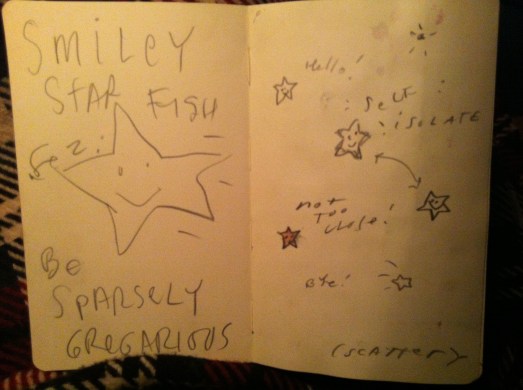 SMiLEY
STAR FISH
SEZ:
BE
SPARSELY
GREGARIOUS
Hello!
: SELF :
: ISOLATE
not
TOO
close!
BYE!
(SCATTER)